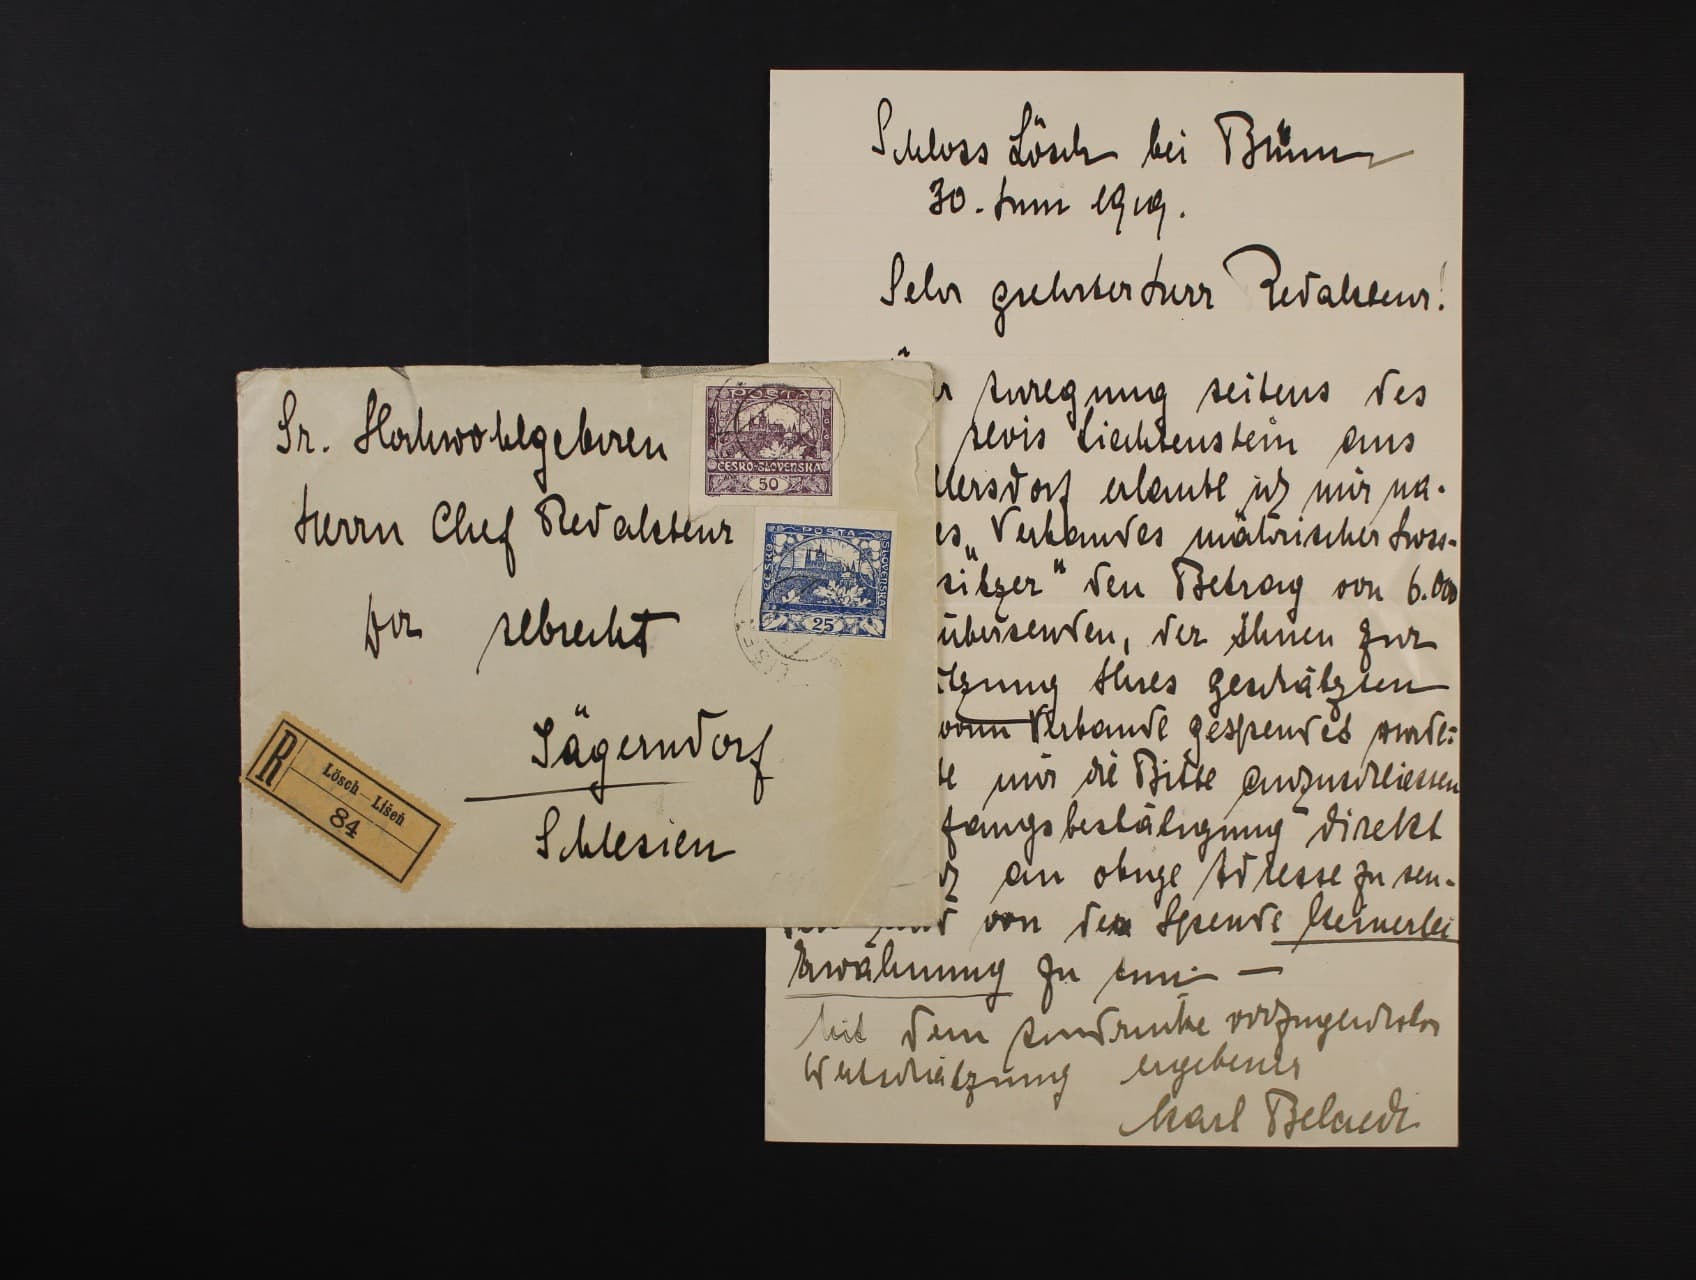 Schloss Lösch bei Brünn
30. Juni 1919.
Sehr geehrter Herr Redakteur!
Anregung seitens des
Liechtenstein aus
llersdorf erlaube ich mir na-
es Verbandes mährischer Gross-
sitzer" den Betrag von 6.000
übersenden, der Ihnen zur
tzung Ihres geschätzten
vom Verbande gespendet wurde:
te mir die Bitte anzuschliessen
fangsbestätigung direkt
an obige Adresse zu sen-
den und von der Spende keinerlei
Erwähnung zu tun —
Mit dem Ausdrucke vorzüglicher
Wertschätzung ergebener
Karl Belcredi
Sr. Hochwohlgeboren
Herrn Chef Redakteur
Dr
Jägerndorf
Schlesien
POSTA
ČESKO-SLOVENSKA
50
POSTA
ČESKO
SLOVENSKA
25
R
Lösch—Lišeň
84